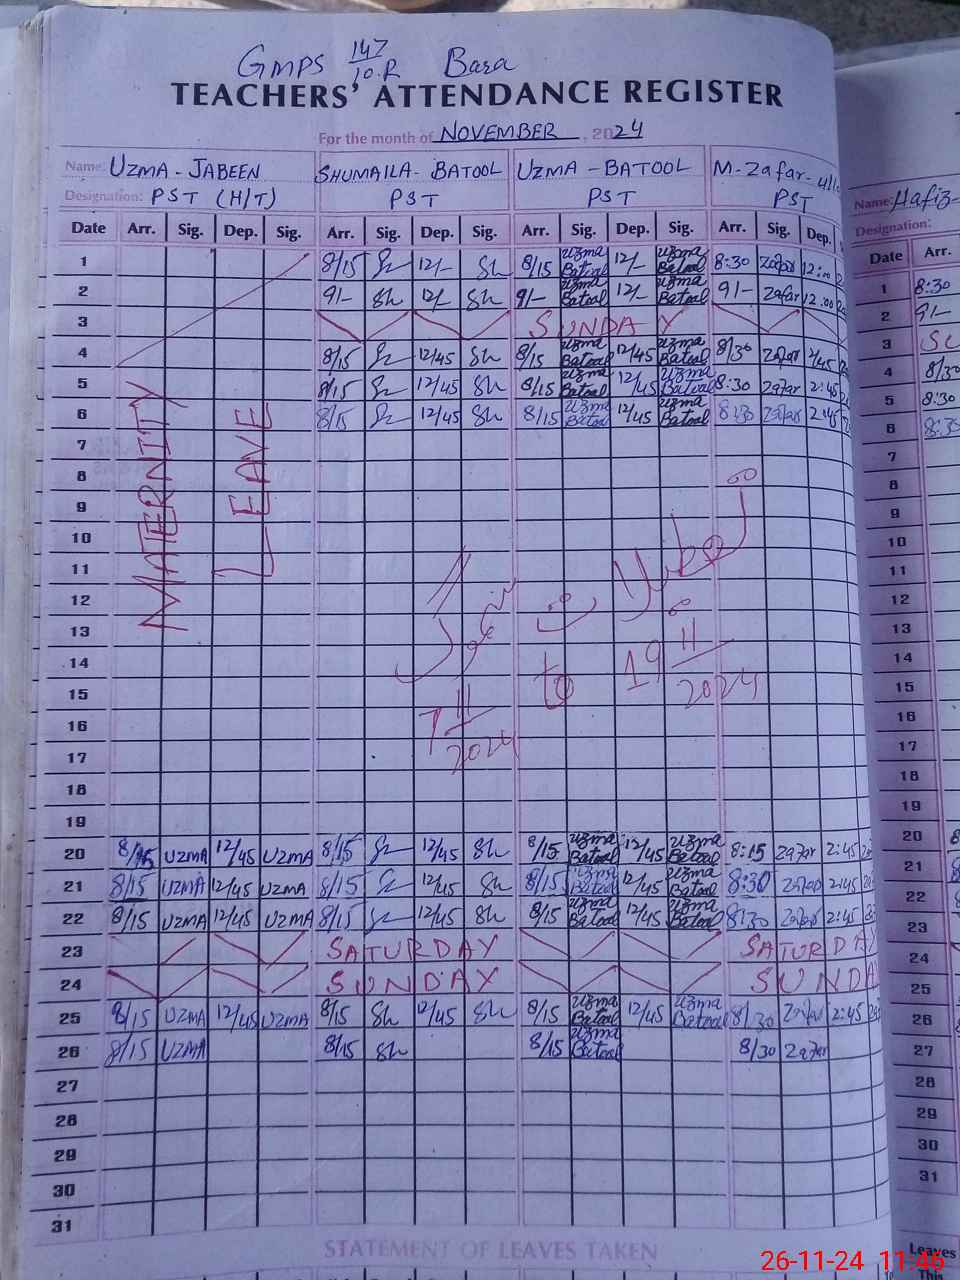 GMPS 147/10.R Bara
TEACHERS' ATTENDANCE REGISTER
For the month of NOVEMBER, 2024
Name: UZMA - JABEEN SHUMAILA - BATOOL UZMA - BATOOL M - Zafar - ull Name: Hafiz-
Designation: PST (H/T) PST PST PST Designation:
Date Arr. Sig. Dep. Sig. Arr. Sig. Dep. Sig. Arr. Sig. Dep. Sig. Arr. Sig. Dep. Date Arr.
1 8/15 12/- Sh 8/15 Uzma Batool 12/- Uzma Batool 8:30 Zafar 12:00 1 8:30
2 9/- Sh 12/- Sh 9/- Uzma Batool 12/- Uzma Batool 9/- Zafar 12:00 2 9/-
3 SUNDAY 3 SU
4 8/15 12/45 Sh 8/15 Uzma Batool 12/45 Uzma Batool 8/30 Zafar 2/45 4 8/30
5 8/15 12/45 Sh 8/15 Uzma Batool 12/45 Uzma Batool 8:30 Zafar 2:45 5 8:30
6 8/15 12/45 Sh 8/15 Uzma Batool 12/45 Uzma Batool 8:30 Zafar 2:45 6 8:30
MATERNITY LEAVE
7 7
8 8
9 9
10 10
11 11
12 12
13 13
14 14
15 15
16 16
17 17
18 18
19 19
7 11/2024 to 19 11/2024
20 8/15 UZMA 12/45 UZMA 8/15 12/45 Sh 8/15 Uzma Batool 12/45 Uzma Batool 8:15 Zafar 2:45 20
21 8/15 UZMA 12/45 UZMA 8/15 12/45 Sh 8/15 Uzma Batool 12/45 Uzma Batool 8:30 Zafar 2:45 21
22 8/15 UZMA 12/45 UZMA 8/15 12/45 Sh 8/15 Uzma Batool 12/45 Uzma Batool 8:30 Zafar 2:45 22
23 SATURDAY SATURDAY 23
24 SUNDAY SUNDAY 24
25 8/15 UZMA 12/45 UZMA 8/15 Sh 12/45 Sh 8/15 Uzma Batool 12/45 Uzma Batool 8/30 Zafar 2:45 25
26 8/15 UZMA 8/15 Sh 8/15 Uzma Batool 8/30 Zafar 26
27 27
28 28
29 29
30 30
31 31
STATEMENT OF LEAVES TAKEN
Leaves
This
26-11-24 11:46